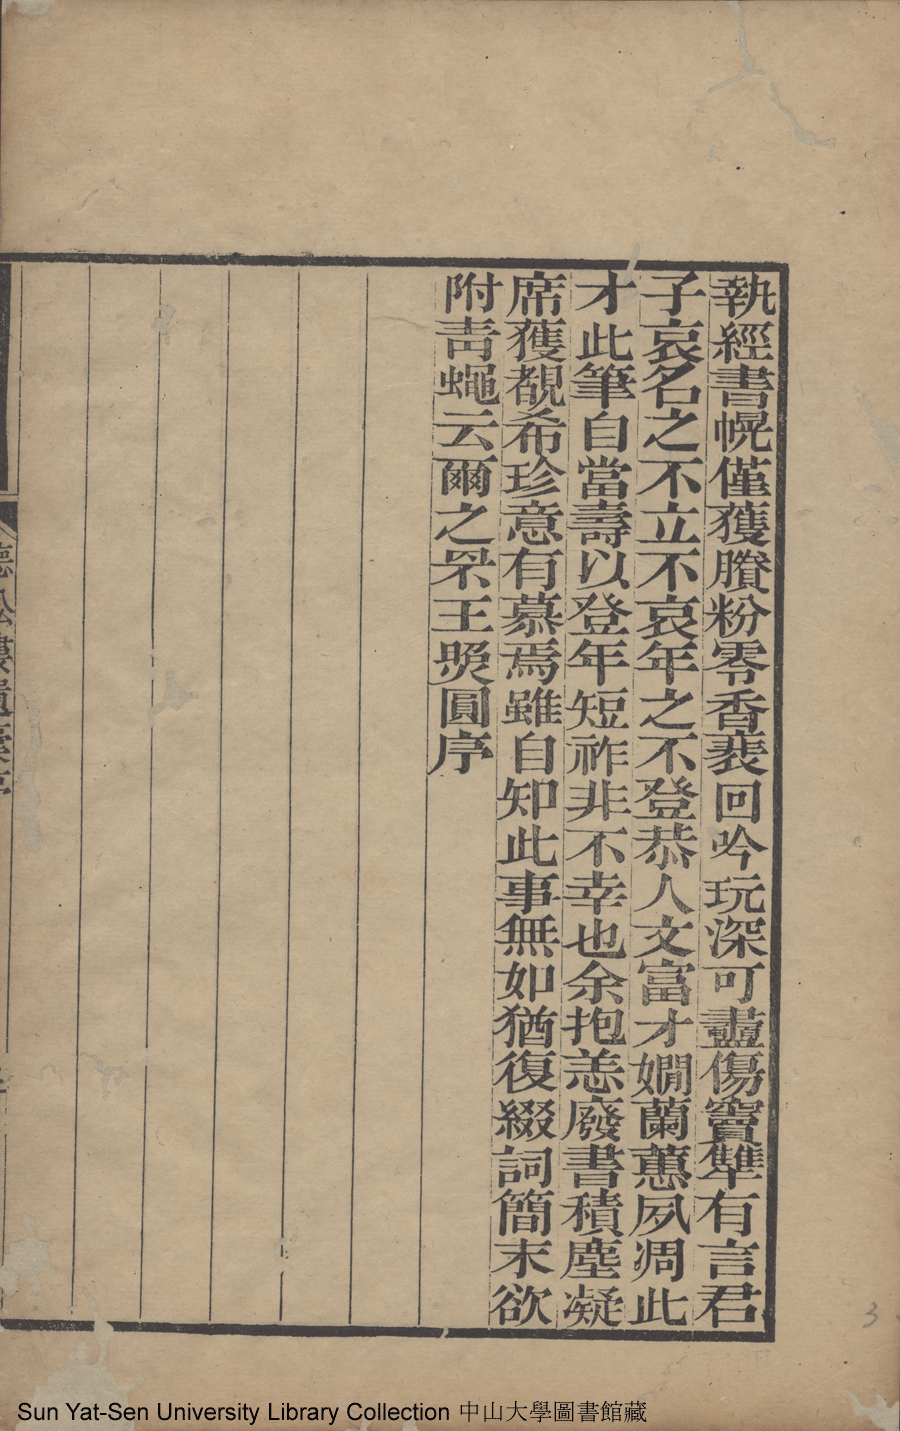 執經書幌僅獲賸粉零香裴回吟玩深可衋傷竇犨有言君
子哀名之不立不哀年之不登恭人文富才嫺蘭蕙夙凋此
才此筆自當壽以登年短祚非不幸也余抱恙廢書積塵凝
席獲覩希珍意有慕焉雖自知此事無如猶復綴詞簡末欲
附青蠅云爾之罘王煚圓序
德㳂樓遺稾序
3
Sun Yat-Sen University Library Collection 中山大學圖書館藏